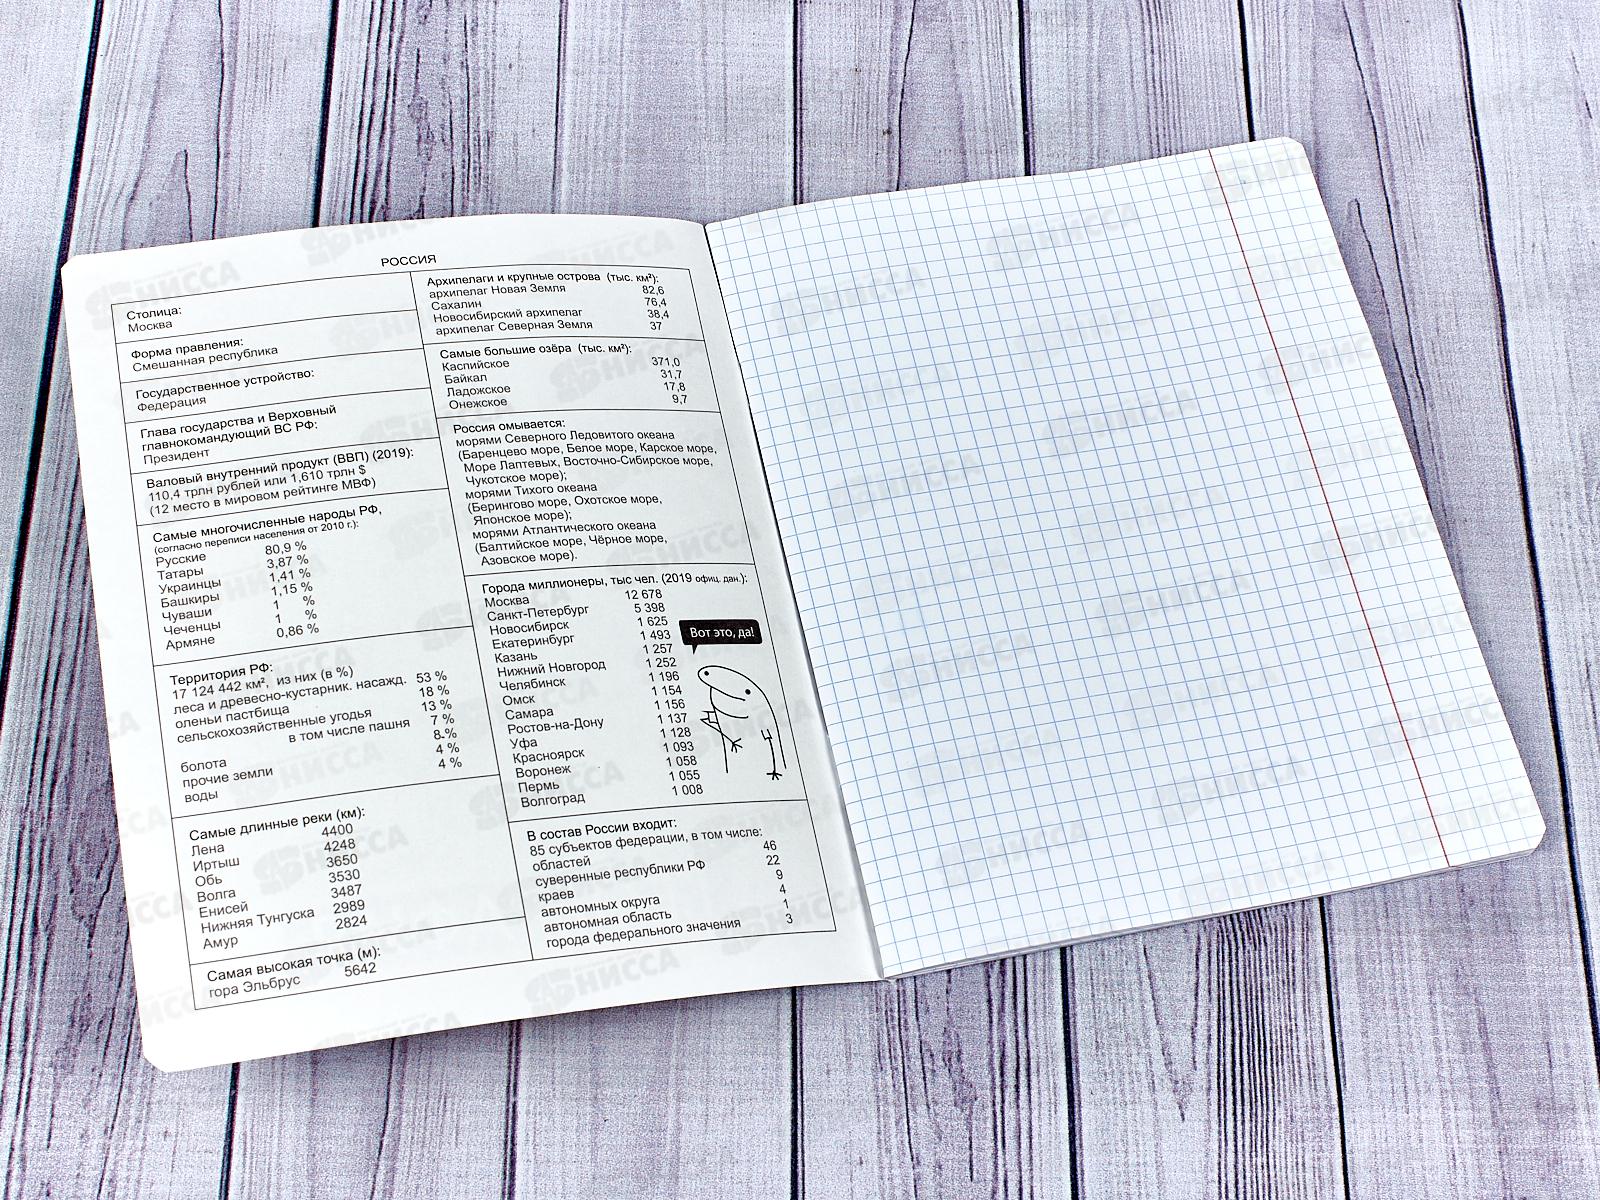 РОССИЯ
Столица:
Москва
Форма правления:
Смешанная республика
Государственное устройство:
Федерация
Глава государства и Верховный
главнокомандующий ВС РФ:
Президент
Валовый внутренний продукт (ВВП) (2019):
110,4 трлн рублей или 1,610 трлн $
(12 место в мировом рейтинге МВФ)
Самые многочисленные народы РФ,
(согласно переписи населения от 2010 г.):
Русские 80,9 %
Татары 3,87 %
Украинцы 1,41 %
Башкиры 1,15 %
Чуваши 1 %
Чеченцы 1 %
Армяне 0,86 %
Территория РФ:
17 124 442 км², из них (в %)
леса и древесно-кустарник. насажд. 53 %
оленьи пастбища 18 %
сельскохозяйственные угодья 13 %
в том числе пашня 7 %
8 %
болота 4 %
прочие земли 4 %
воды
Самые длинные реки (км):
Лена 4400
Иртыш 4248
Обь 3650
Волга 3530
Енисей 3487
Нижняя Тунгуска 2989
Амур 2824
Самая высокая точка (м):
гора Эльбрус 5642
Архипелаги и крупные острова (тыс. км²):
архипелаг Новая Земля 82,6
Сахалин 76,4
Новосибирский архипелаг 38,4
архипелаг Северная Земля 37
Самые большие озёра (тыс. км²):
Каспийское 371,0
Байкал 31,7
Ладожское 17,8
Онежское 9,7
Россия омывается:
морями Северного Ледовитого океана
(Баренцево море, Белое море, Карское море,
Море Лаптевых, Восточно-Сибирское море,
Чукотское море);
морями Тихого океана
(Берингово море, Охотское море,
Японское море);
морями Атлантического океана
(Балтийское море, Чёрное море,
Азовское море).
Города миллионеры, тыс чел. (2019 офиц. дан.):
Москва 12 678
Санкт-Петербург 5 398
Новосибирск 1 625
Екатеринбург 1 493
Казань 1 257
Нижний Новгород 1 252
Челябинск 1 196
Омск 1 154
Самара 1 156
Ростов-на-Дону 1 137
Уфа 1 128
Красноярск 1 093
Воронеж 1 058
Пермь 1 055
Волгоград 1 008
Вот это, да!
В состав России входит:
85 субъектов федерации, в том числе:
областей 46
суверенные республики РФ 22
краев 9
автономных округа 4
автономная область 1
города федерального значения 3